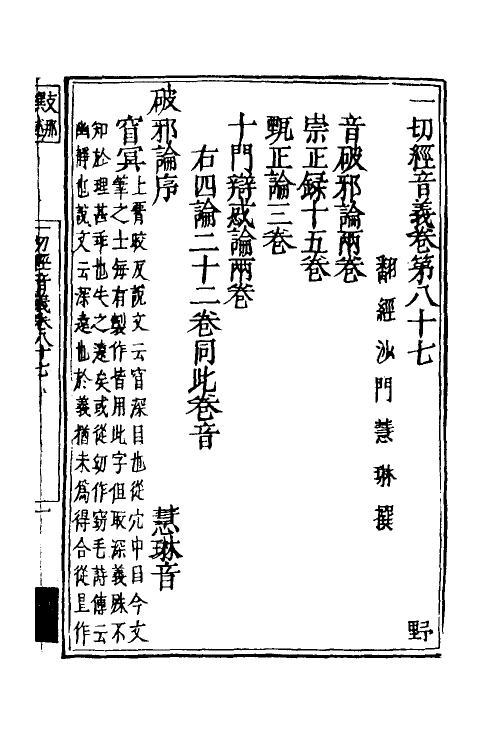 一切經音義卷第八十七　野
翻經沙門慧琳撰
音破邪論兩卷
崇正錄十五卷
甄正論三卷
十門辯惑論兩卷
右四論二十二卷同此卷音
破邪論序　慧琳音
窅冥上霄皎反說文云窅深目也從穴中目今文
筆之士每有製作皆用此字但取深義殊不
知於理甚乖也失之遠矣或從幼作窈毛詩傳云
幽靜也說文云深遠也於義猶未爲得合從皀作
一切經音義卷八十七